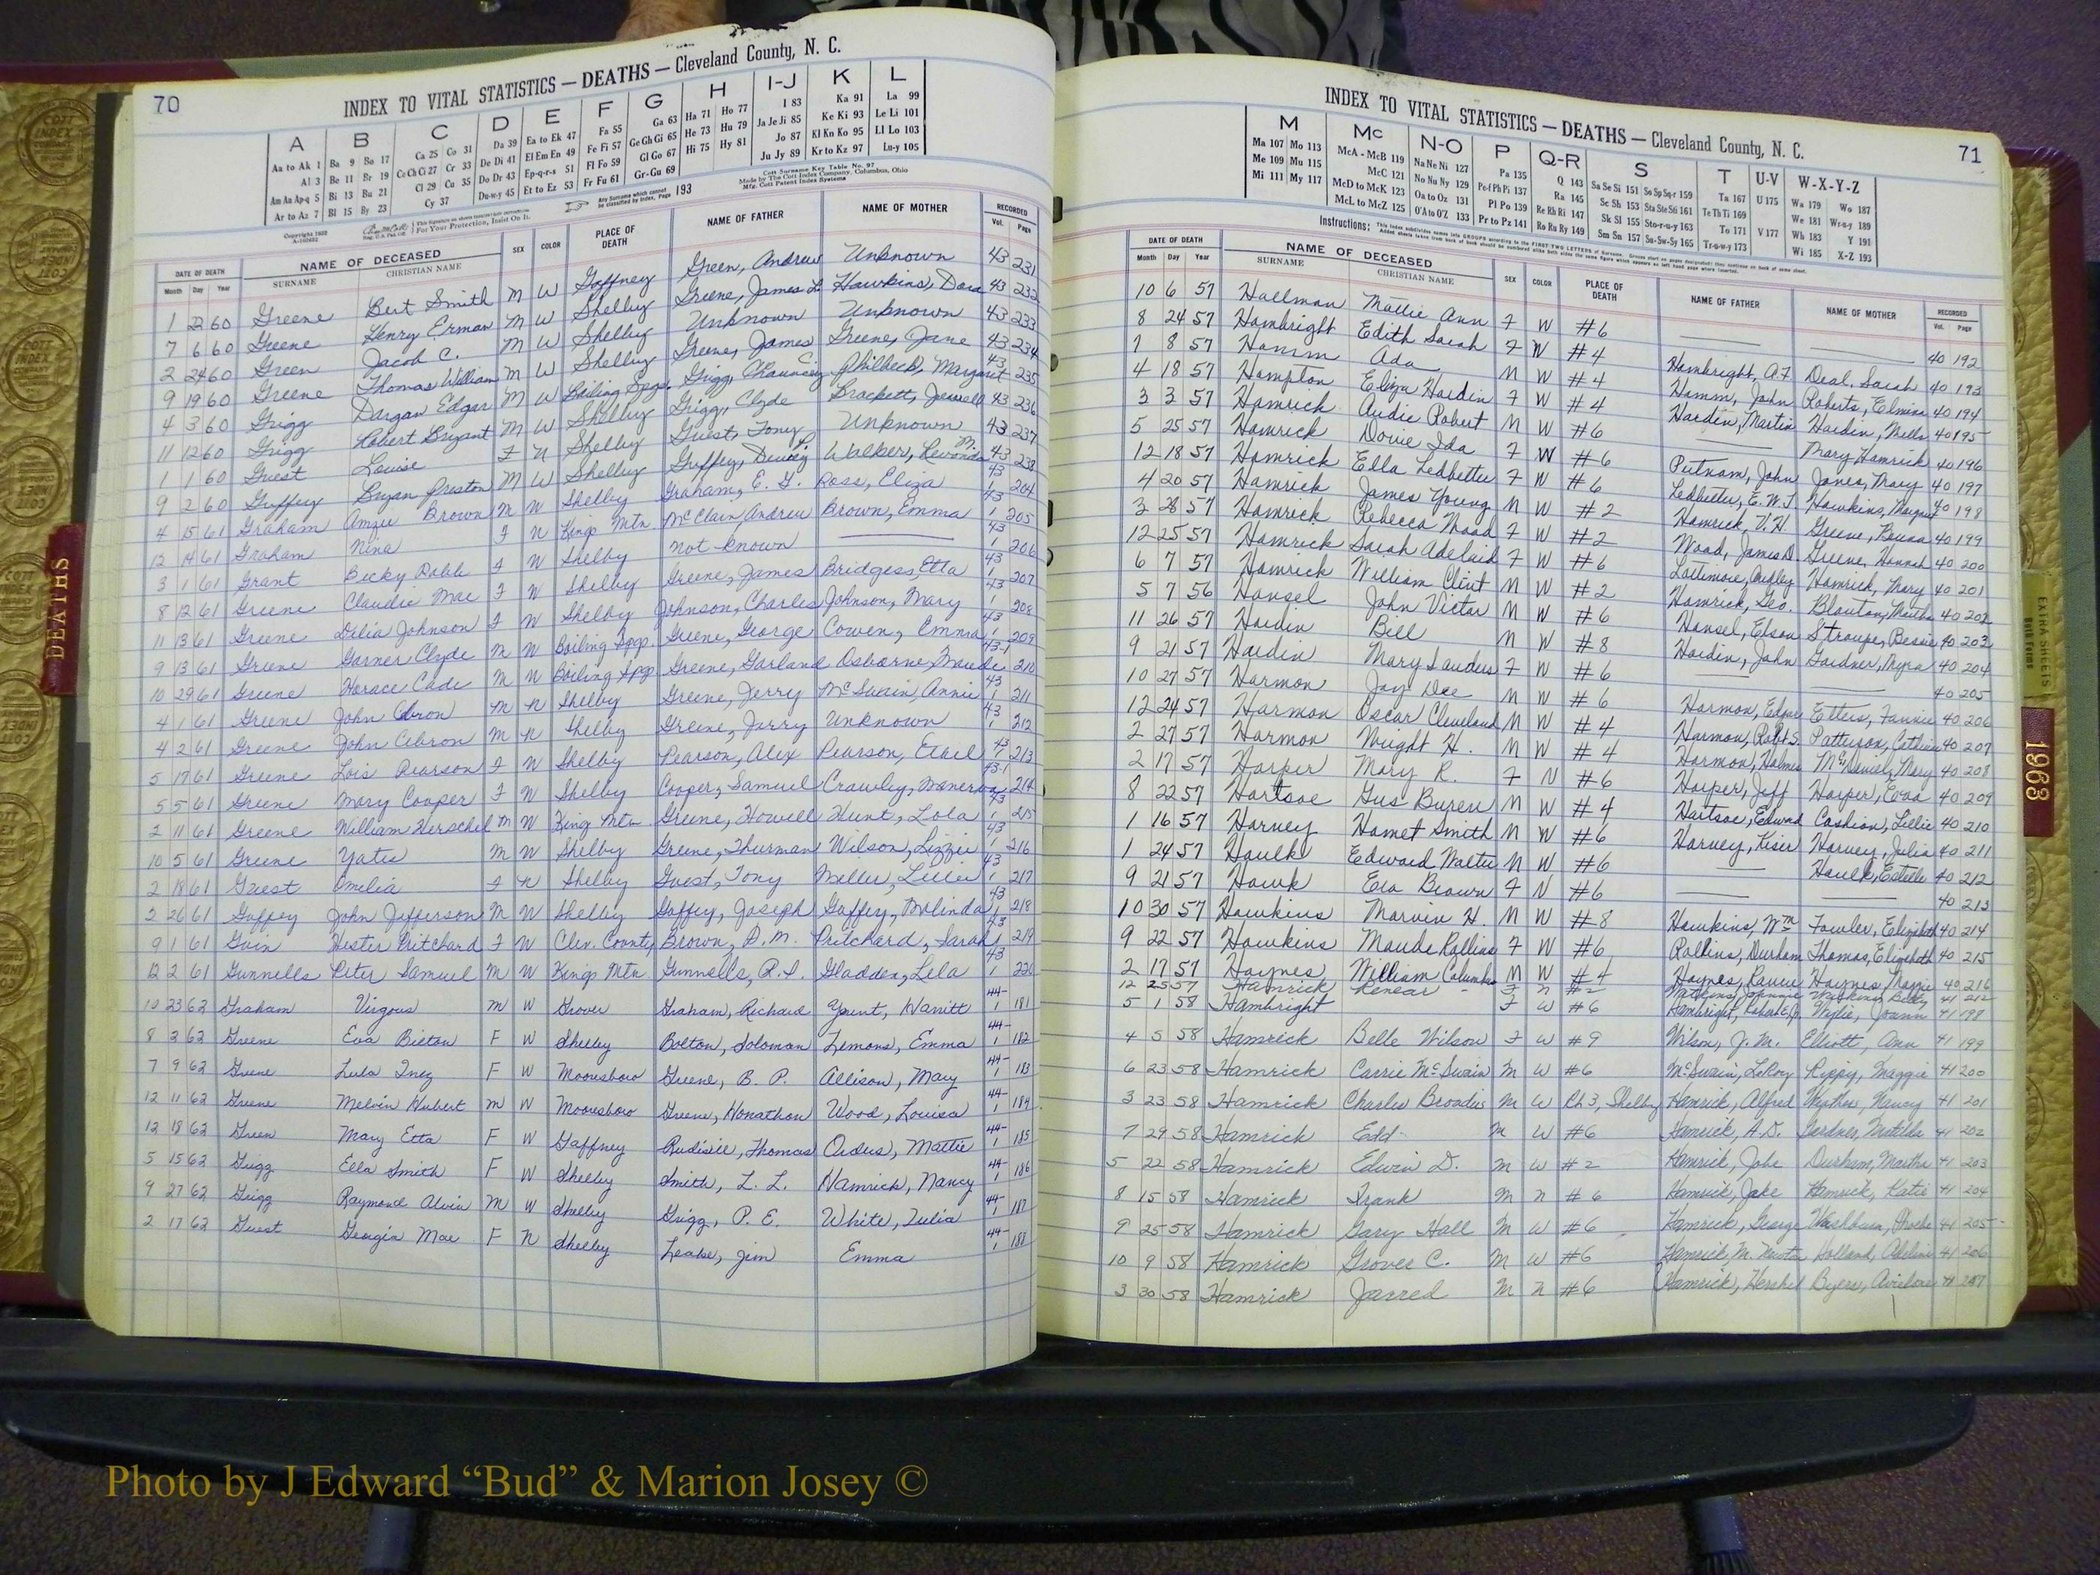 70
INDEX TO VITAL STATISTICS — DEATHS — Cleveland County, N. C.
A B C D E F G H I-J K L
Aa to Ak 1 Ba 9 Bo 17 Ca 25 Co 31 Da 39 Ea to Ek 47 Fa 55 Ga 63 Ha 71 Ho 77 I 83 Ka 91 La 99
Al 3 Be 11 Br 19 Ce Ch Ci 27 Cr 33 De Di 41 El Em En 49 Fe Fi 57 Ge Gh Gi 65 He 73 Hu 79 Ja Je Ji 85 Ke Ki 93 Le Li 101
Am An Ap-q 5 Bi 13 Bu 21 Cl 29 Cu 35 Do Dr 43 Ep-q-r-s 51 Fl Fo 59 Gl Go 67 Hi 75 Hy 81 Jo 87 Kl Kn Ko 95 Ll Lo 103
Ar to Az 7 Bl 15 By 23 Cy 37 Du-w-y 45 Et to Ez 53 Fr Fu 61 Gr-Gu 69 Ju Jy 89 Kr to Kz 97 Lu-y 105
Cott Surname Key Table No. 97
Made by The Cott Index Company, Columbus, Ohio
Mfg. Cott Patent Index Systems
Any Surname which cannot be classified by Index, Page 193
Copyright 1932
For Your Protection, Insist On It.
DATE OF DEATH NAME OF DECEASED SEX COLOR PLACE OF DEATH NAME OF FATHER NAME OF MOTHER RECORDED
Month Day Year SURNAME CHRISTIAN NAME Vol. Page
1 22 60 Greene Bert Smith M W Gaffney Green, Andrew Unknown 43 231
7 6 60 Greene Henry Erman M W Shelby Greene, James L. Hawkins, Dora 43 232
2 24 60 Green Jacob C. M W Shelby Unknown Unknown 43 233
9 19 60 Greene Thomas William M W Shelby Greene, James Greene, Jane 43 234
4 3 60 Grigg Dargan Edgar M W Boiling Spgs. Grigg, Chauncey Philbeck, Margaret 43 235
11 12 60 Grigg Robert Bryant M W Shelby Grigg, Clyde Brackett, Jewell 43 236
1 1 60 Guest Louise F N Shelby Guest, Tony Unknown 43 237
9 2 60 Guffey Bryan Preston M W Shelby Guffey, Walker, 43 238
4 15 61 Graham Amzie Brown M W Shelby Graham, E. Y. Ross, Eliza 43 1 204
12 14 61 Graham Nina F N Kings Mtn McClain, Andrew Brown, Emma 43 1 205
3 1 61 Grant Becky Robbs F W Shelby not known 43 1 206
8 12 61 Greene Claudie Mae F W Shelby Greene, James Bridges, Etta 43 1 207
11 13 61 Greene Delia Johnson F W Shelby Johnson, Charles Johnson, Mary 43 1 208
9 13 61 Greene Garner Clyde M W Boiling Spgs. Greene, George Cowen, Emma 43 1 209
10 29 61 Greene Horace Cade M W Boiling Spgs Greene, Garland Osborne, Maude 43-1 210
4 1 61 Greene John Cebron M N Shelby Greene, Jerry McSwain, Annie 43 1 211
4 2 61 Greene John Cebron M N Shelby Greene, Jerry Unknown 43 1 212
5 17 61 Greene Lois Pearson F W Shelby Pearson, Alex Pearson, 43 1 213
5 5 61 Greene Mary Cooper F W Shelby Cooper, Samuel Crawley, Manerva 43-1 214
2 11 61 Greene William Herschel M W King Mtn Greene, Howell Hunt, Lola 43 1 215
10 5 61 Greene Yates M W Shelby Greene, Thurman Wilson, Lizzie 43 1 216
2 18 61 Guest Amelia F N Shelby Guest, Tony Miller, Lillie 43 1 217
2 26 61 Gaffey John Jefferson M W Shelby Gaffey, Joseph Gaffey, Malinda 43 1 218
9 1 61 Goin Hester Pritchard F W Clev. County Brown, D. M. Pritchard, Sarah 43 1 219
12 2 61 Gunnells Peter Samuel M W Kings Mtn Gunnells, R. S. Gladden, Lela 43 1 220
10 23 62 Graham Virgous M W Grover Graham, Richard Yount, Harritt 44-1 181
8 3 62 Greene Eva Bolton F W Shelby Bolton, Soloman Lemons, Emma 44-1 182
7 9 62 Greene Lula Inez F W Mooresboro Greene, B. P. Allison, Mary 44-1 183
12 11 62 Greene Melvin Hubert M W Mooresboro Greene, Honathan Wood, Louisa 44-1 184
12 18 62 Green Mary Etta F W Gaffney Rudisill, Thomas Ardes, Mattie 44-1 185
5 15 62 Grigg Ella Smith F W Shelby Smith, L. L. Hamrick, Nancy 44-1 186
9 27 62 Grigg Raymond Alvin M W Shelby Grigg, P. E. White, Julia 44-1 187
2 17 62 Guest Georgia Mae F N Shelby Lease, Jim Emma 44-1 188
71
INDEX TO VITAL STATISTICS — DEATHS — Cleveland County, N. C.
M Mc N-O P Q-R S T U-V W-X-Y-Z
Ma 107 Mo 113 McA - McB 119 Na Ne Ni 127 Pa 135 Q 143 Sa Se Si 151 So Sp Sq-r 159 Ta 167 U 175 Wa 179 Wo 187
Me 109 Mu 115 McC 121 No Nu Ny 129 Pe-f Ph Pi 137 Ra 145 Sc Sh 153 Sta Ste Sti 161 Te Th Ti 169 We 181 Wr-u-y 189
Mi 111 My 117 McD to McK 123 Oa to Oz 131 Pl Po 139 Re Rh Ri 147 Sk Sl 155 Sto-r-u-y 163 To 171 V 177 Wh 183 Y 191
McL to McZ 125 O'A to O'Z 133 Pr to Pz 141 Ro Ru Ry 149 Sm Sn 157 Su-Sw-Sy 165 Tr-u-w-y 173 Wi 185 X-Z 193
Instructions:
DATE OF DEATH NAME OF DECEASED SEX COLOR PLACE OF DEATH NAME OF FATHER NAME OF MOTHER RECORDED
Month Day Year SURNAME CHRISTIAN NAME Vol. Page
10 6 57 Hallman Mallie Ann F W #6 40 192
8 24 57 Hambright Edith Sarah F W #4 Hambright, A F Deal, Sarah 40 193
1 8 57 Hamm Ada M W #4 Hamm, John Roberts, Elmina 40 194
4 18 57 Hampton Eliza Hardin F W #4 Hardin, Martin Hardin, Mills 40 195
3 3 57 Hamrick Audie Robert M W #6 Mary Hamrick 40 196
5 25 57 Hamrick Dovie Ida F W #6 Putnam, John Jones, Mary 40 197
12 18 57 Hamrick Ella Ledbetter F W #6 Ledbetter, E. W. T. Hawkins, Margaret 40 198
4 20 57 Hamrick James Young M W #2 Hamrick, V. H. Greene, 40 199
3 28 57 Hamrick Rebecca Wood F W #2 Wood, James D. Greene, Hannah 40 200
12 25 57 Hamrick Sarah Adelaid F W #6 Lattimore, Hamrick, Mary 40 201
6 7 57 Hamrick William Clint M W #2 Hamrick, Geo. Blanton, Martha 40 202
5 7 56 Hansel John Victor M W #6 Hansel, Elson Stroupe, Bessie 40 203
11 26 57 Hardin Bill M W #8 Hardin, John Gardner, Myra 40 204
9 21 57 Hardin Mary Sanders F W #6 40 205
10 27 57 Harmon Jay Dee M W #6 Harmon, Edgar Etters, Fannie 40 206
12 24 57 Harmon Oscar Cleveland M W #4 Harmon, Robt S. Patterson, Cathleen 40 207
2 27 57 Harmon Wright H. M W #4 Harmon, Holmes McDaniel, Mary 40 208
2 17 57 Harper Mary R. F N #6 Harper, Jeff Harper, Eva 40 209
8 22 57 Hartsoe Gus Buren M W #4 Hartsoe, Edward Cashion, Lillie 40 210
1 16 57 Harvey Hamet Smith M W #6 Harvey, Kiser Harvey, Julia 40 211
1 24 57 Haulk Edward Walter M W #6 Haulk, Estelle 40 212
9 21 57 Hawk Eva Brown F N #6 40 213
10 30 57 Hawkins Marvin H. M W #8 Hawkins, Wm Fowler, Elizabeth 40 214
9 22 57 Hawkins Maude Rollins F W #6 Rollins, Durham Thomas, Elizabeth 40 215
2 17 57 Haynes William Columbus M W #4 Haynes, Haynes, 40 216
12 25 57 Hamrick F N #2 Watkins, Johnnie Watkins, Betty 41 212
5 1 58 Hambright F W #6 Hambright, Robert E. Jr Wylie, Joann 41 198
4 5 58 Hamrick Belle Wilson F W #9 Wilson, J. M. Elliott, Ann 41 199
6 23 58 Hamrick Carrie McSwain M W #6 McSwain, LeRoy Rippy, Maggie 41 200
3 23 58 Hamrick Charles Broadus M W Ch 3, Shelby Hamrick, Alfred Nancy 41 201
7 29 58 Hamrick Edd M W #6 Hamrick, A. D. Gardner, Matilda 41 202
5 22 58 Hamrick Edwin D. M W #2 Hamrick, Jake Durham, Martha 41 203
8 15 58 Hamrick Frank M N #6 Hamrick, Jake Hamrick, Katie 41 204
9 25 58 Hamrick Gary Hall M W #6 Hamrick, George Washburn, Phoebe 41 205
10 9 58 Hamrick Grover C. M W #6 Hamrick, M. Newton Holland, Adeline 41 206
3 30 58 Hamrick Jarred M N #6 Hamrick, Hershel Byers, 41 207
DEATHS
EXTRA SHEETS
1963
COTT INDEX COMPANY
Photo by J Edward “Bud” & Marion Josey ©